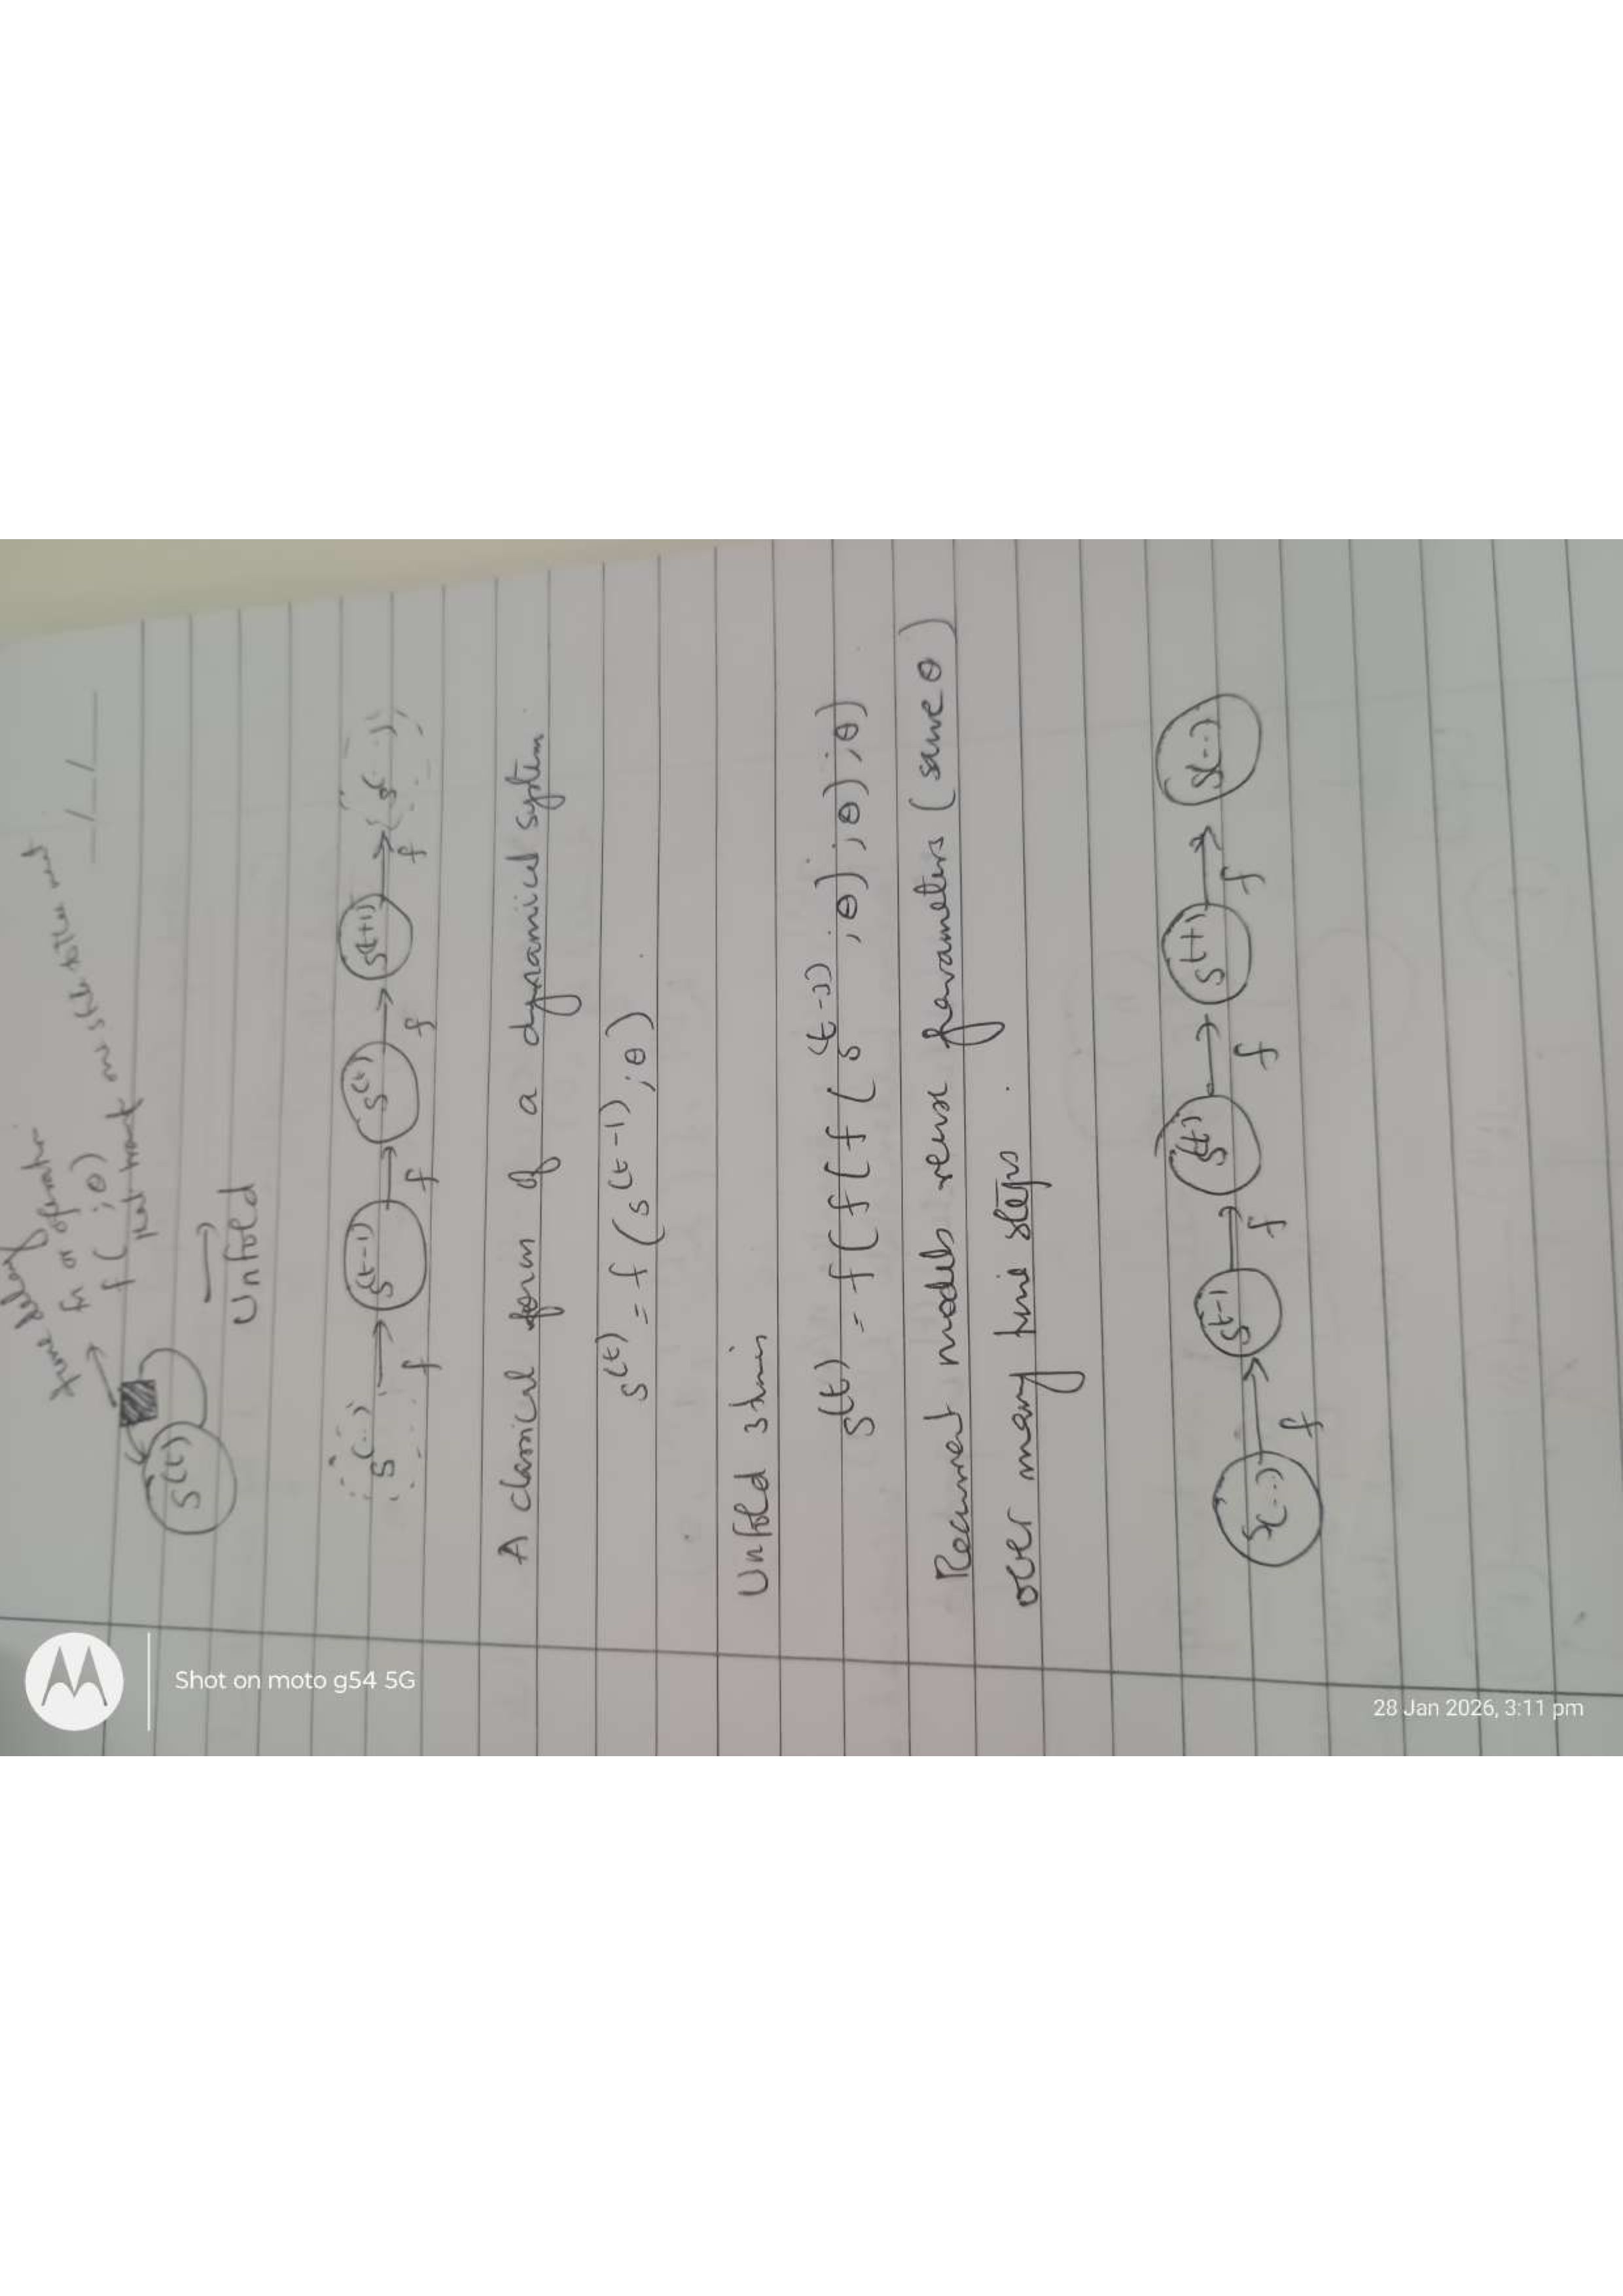 time delay
fn or operator
f ( ; θ)
that trans one state to the next
__/__/__
S(t)
→
Unfold
S(..) → S(t-1) → S(t) → S(t+1) → S(..)
f f f f
A classical form of a dynamical system.
S(t) = f (S(t-1) ; θ)
Unfold 3 times
S(t) = f ( f ( f ( S(t-3) ; θ) ; θ) ; θ)
Recurrent models reuse parameters (same θ)
over many time steps.
S(..) → St-1 → S(t) → St+1 → S(..)
f f f f
Shot on moto g54 5G
28 Jan 2026, 3:11 pm